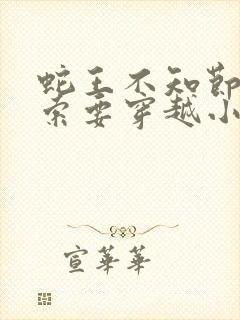 蛇王不知節
索要穿越小
宣華華